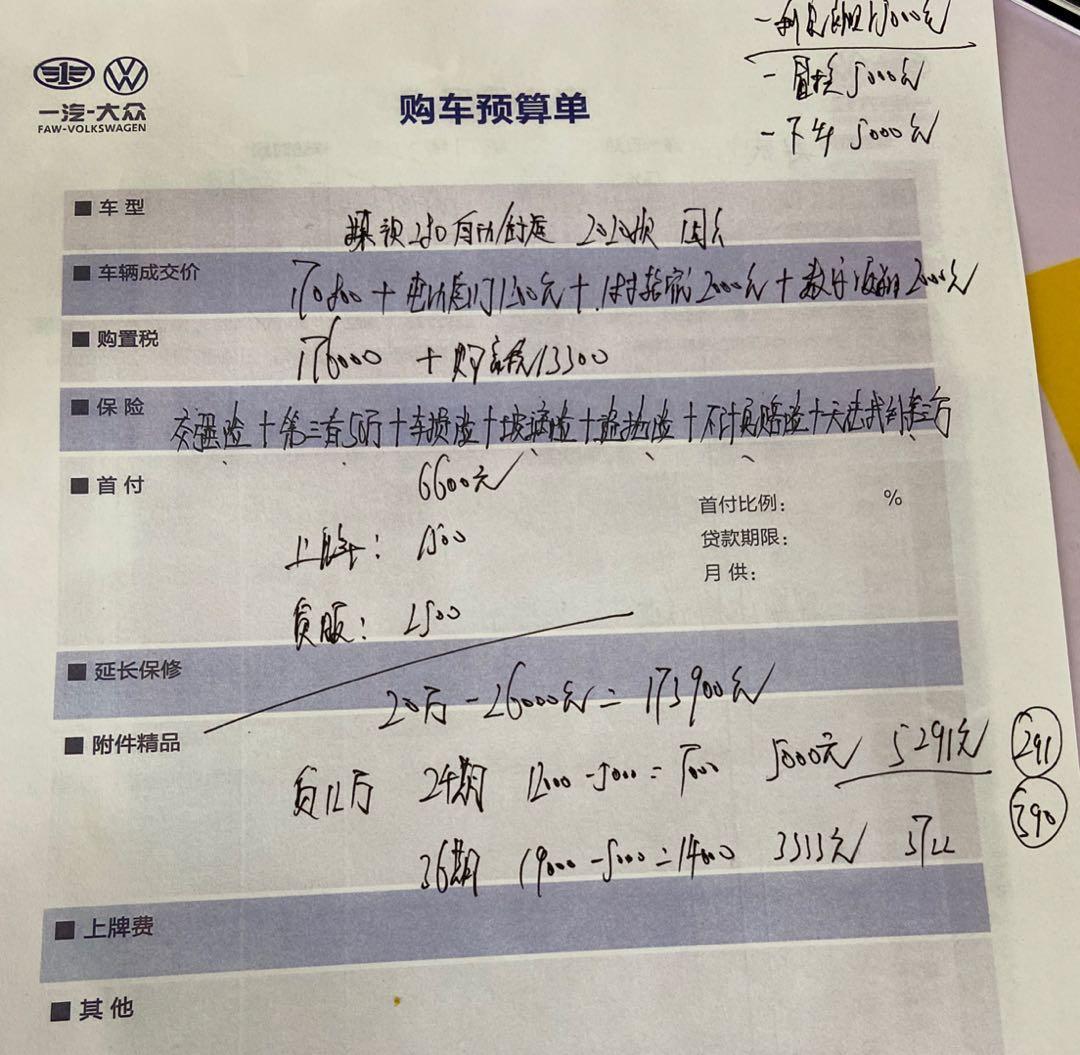 -置换 5000元
-下牛 5000元
一汽-大众
FAW-VOLKSWAGEN
购车预算单
■ 车型
280自动 2020款 国六
■ 车辆成交价
170800 + 2000元 + 数字 2000元
■ 购置税
176000 + 购置税 13300
■ 保险
交强险 + 第三者50万 + 车损险 + 玻璃险 + 险 + 不计负赔险 + 无法找到第三方
■ 首付
6600元
首付比例: %
上牌: 1500
贷款期限:
月供:
贷服: 2500
■ 延长保修
20万 - 26000元 = 173900元
■ 附件精品
贷12万 24期 12000 - 5000 = 7000 5000元 5291元 291
36期 19000 - 5000 = 14000 3333元 3722 390
■ 上牌费
■ 其他